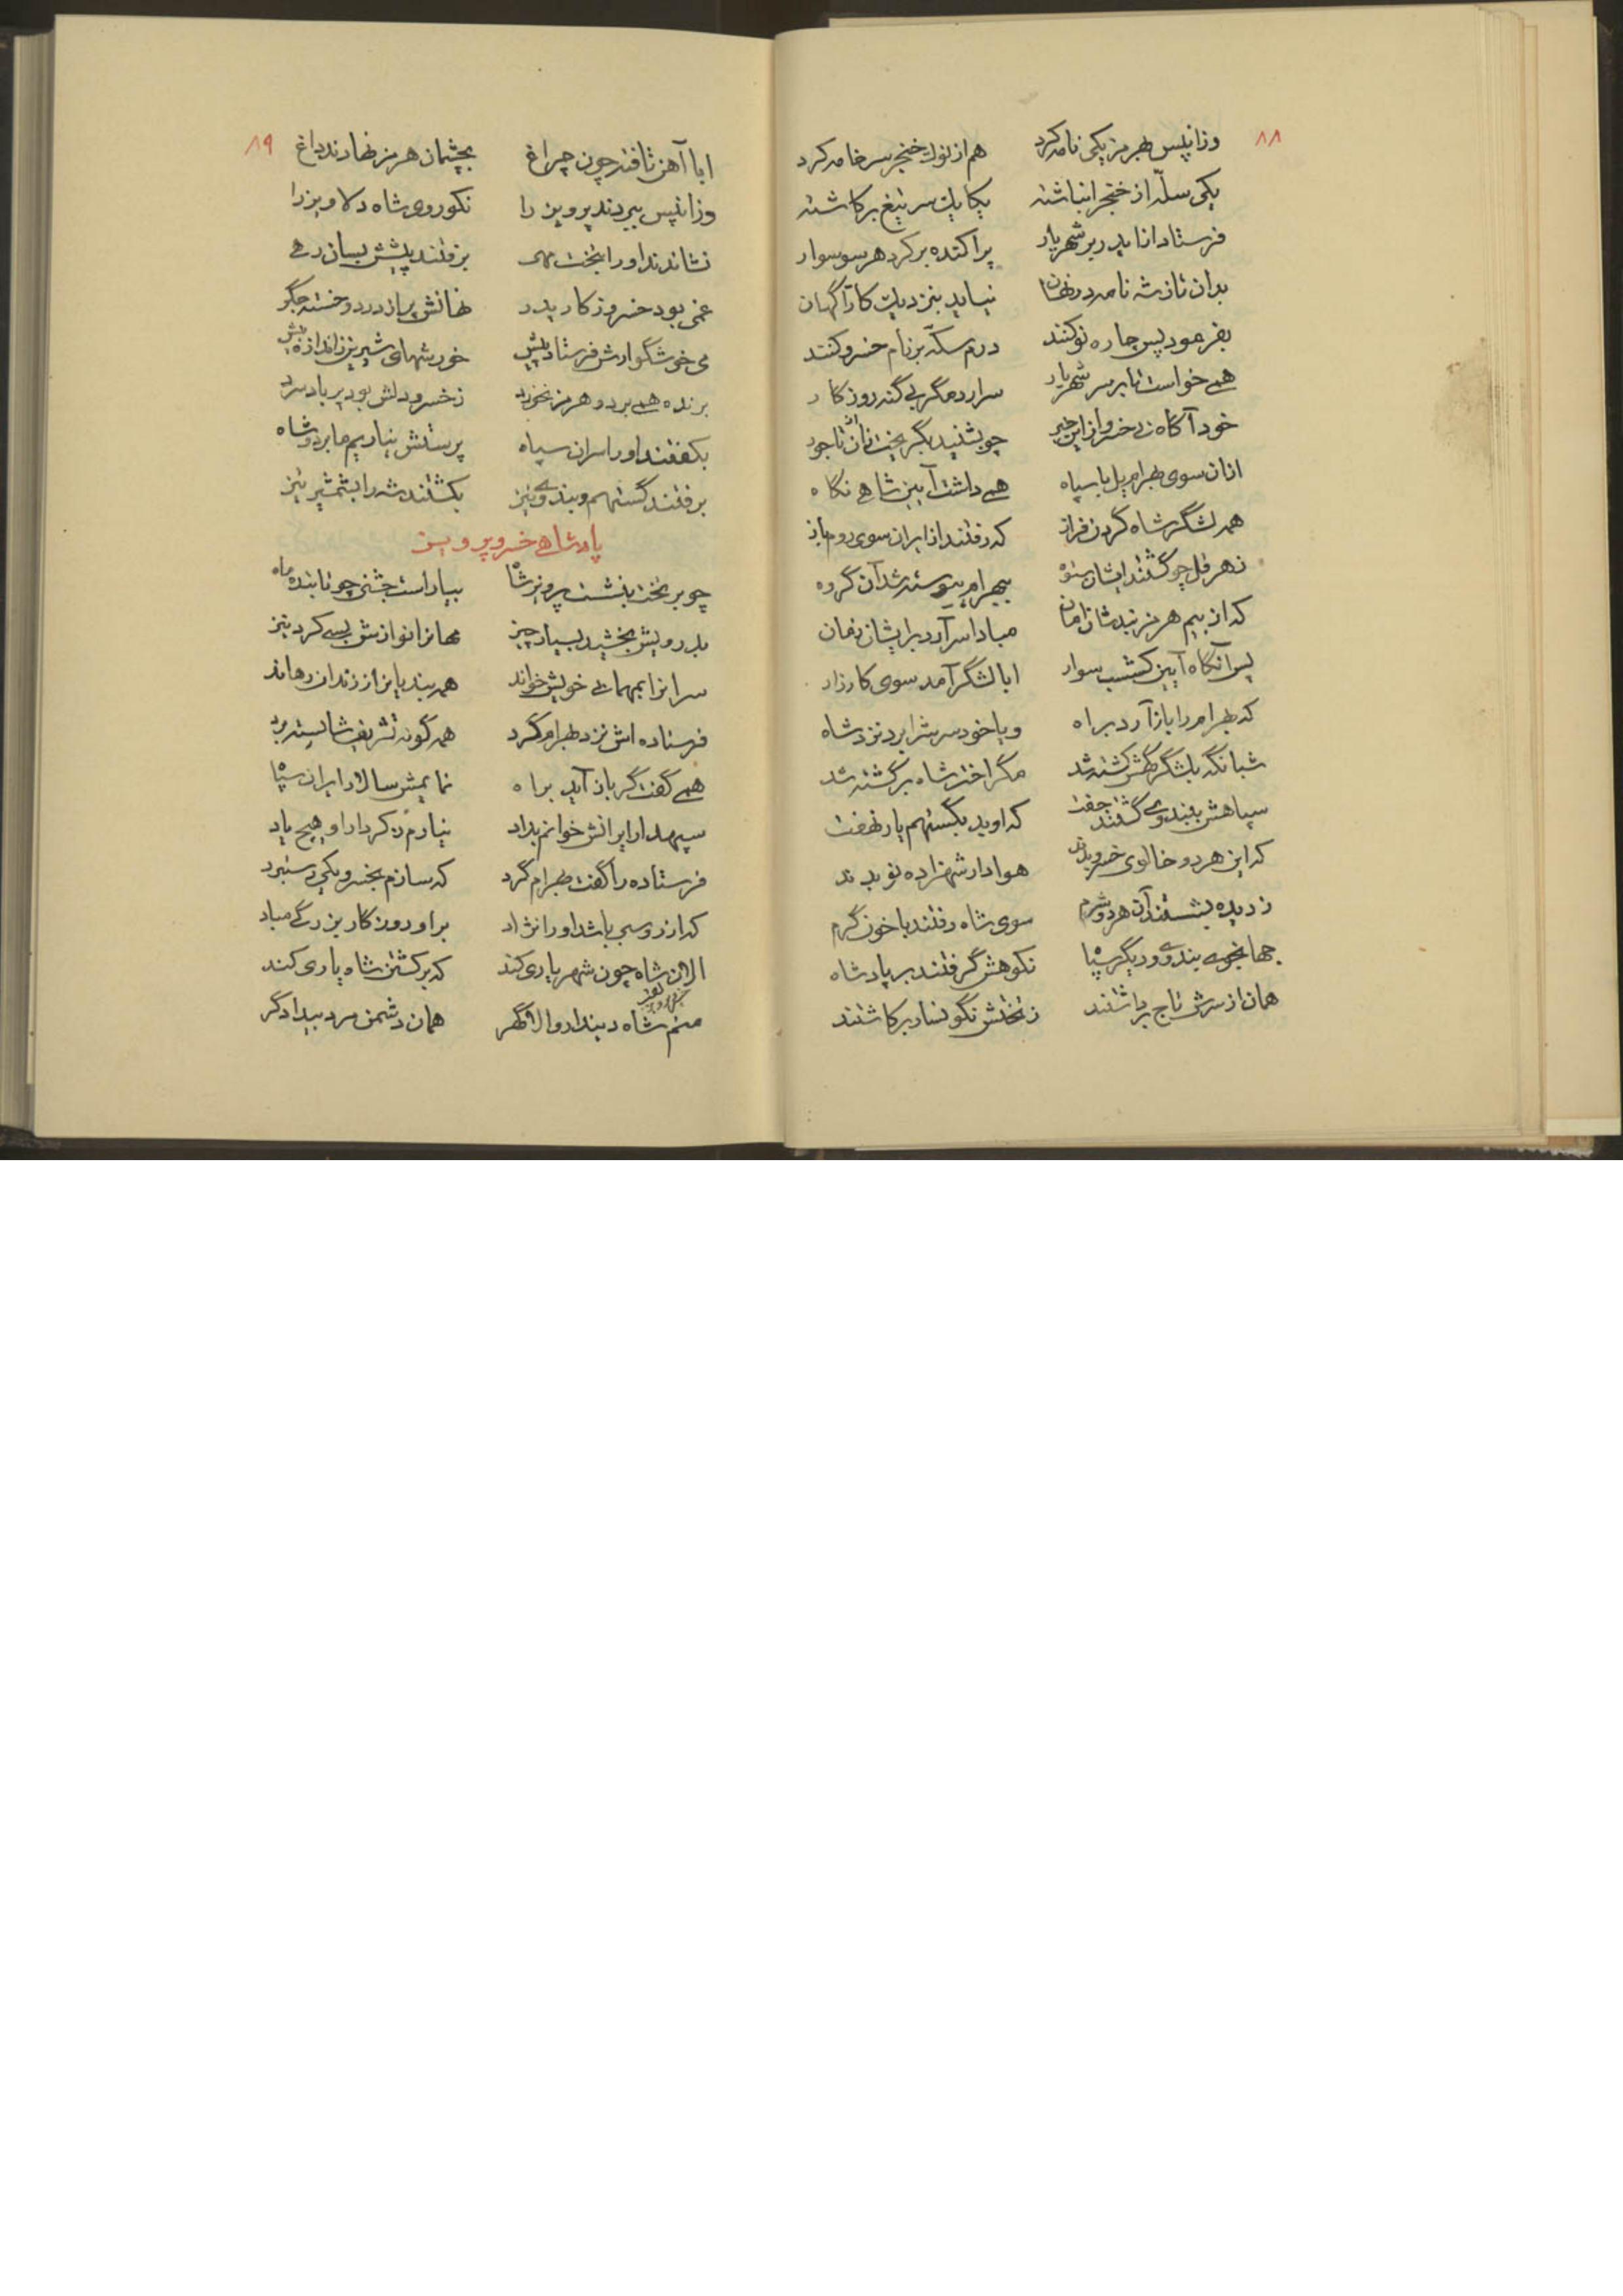 ۸۸
وزانپس بهرمز یکی نامه کرد هم از نوک خنجر سر خامه کرد
یکی سلّه از خنجر انباشته یکایک سر تیغ برکاشته
فرستاد انا بدربر شهریار پراکنده برکرد هر سو سوار
بدان تا ز شه نامه در نهان نیاید بنزدیک کارآگهان
بفرمود پس چاره نو کنند درم سکّه بر نام خسرو کنند
همی خواست تا بر سر شهریار سرآرد مگر بی گنه روزگار
خود آگاه شد خسرو از این خبر چو بشنید بگریخت آن تاجور
ازان سوی بهرام یل با سپاه همی داشت آیین شاهی نگاه
همه لشگر شاه گردن فراز که رفتند از ایران سوی روم باز
ز هرمز چو گشتند ایشان ستوه ببهرام پیوسته شد آن گروه
که از بیم هرمز نبدشان امان مبادا سرآرد بر ایشان زمان
پس آنگاه آیین گشسب سوار ابا لشگر آمد سوی کارزار
که بهرام را باز آرد براه و یا خود سرش را برد نزد شاه
شبانگه بلشگرگهش کشته شد مگر اختر شاه برگشته شد
سپاهش ببندوی گشتند جفت که او بد بگستهم یار نهفت
که این هر دو خالوی خسرو بدند هوادار شهزاده نو بدند
ز دیده بشستند آن هر دو شرم سوی شاه رفتند با خون گرم
جهانجوی بندوی و دیگر سپاه نکوهش گرفتند بر پادشاه
همان از سرش تاج برداشتند ز تختش نگونسار برکاشتند
۸۹
ابا آهن تافته چون چراغ بچشمان هرمز نهادند داغ
وزانپس ببردند پرویز را نکوروی شاه دلاویز را
نشاندند او را بتخت مهی برفتند پیشش بسان رهی
غمی بود خسرو ز کار پدر نهانش پر از درد و خسته جگر
می خوشگوارش فرستاد پیش خورشهای شیرین ز اندازه بیش
برنده همی برد و هرمز نخورد ز خسرو دلش بود پر باد سرد
بگفتند او را سران سپاه پرستش نیاریم ما بر دو شاه
برفتند گستهم و بندوی نیز بکشتند شه را بشمشیر تیز
پادشاهی خسرو پرویز
چو بر تخت بنشست پرویز شاه بیاراست جشنی چو تابنده ماه
بدرویش بخشید بسیار چیز مهانرا نوازش بسی کرد نیز
سرانرا بمهمانی خویش خواند همه بندیانرا ز زندان رهاند
فرستاده اش نزد بهرام گرد همه گونه تشریف شایسته برد
همی گفت گر باز آید براه نمایمش سالار ایران سپاه
سپهدار ایرانش خوانم بداد نیارم ز کردار او هیچ یاد
فرستاده را گفت بهرام گرد که سازم بخسرو یکی دستبرد
که از روسبی باشد او را نژاد بر او روزگار بزرگی مباد
الان شاه چون شهریاری کند که بر کشتن شاه یاری کند
منم شاه دیندار والاگهر همان دشمن مرد بیدادگر